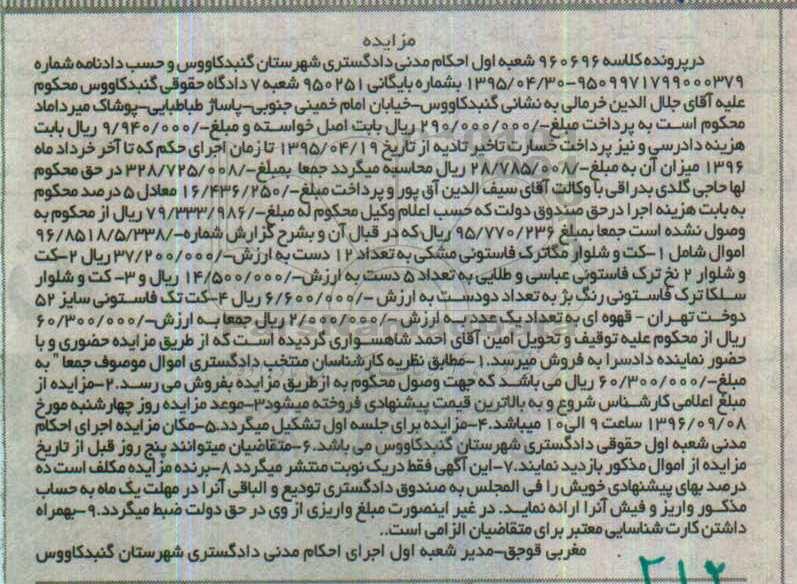 مزایده
درپرونده کلاسه ۹۶۰۶۹۶ شعبه اول احکام مدنی دادگستری شهرستان گنبدکاووس و حسب دادنامه شماره
۹۵۰۹۹۷۱۷۹۹۰۰۰۳۷۹-۱۳۹۵/۰۴/۳۰ بشماره بایگانی ۹۵۰۲۵۱ شعبه ۷ دادگاه حقوقی گنبدکاووس محکوم
علیه آقای جلال الدین خرمالی به نشانی گنبدکاووس-خیابان امام خمینی جنوبی-پاساژ طباطبایی-پوشاک میرداماد
محکوم است به پرداخت مبلغ-/۲۹۰/۰۰۰/۰۰۰ ریال بابت اصل خواسته و مبلغ-/۹/۹۴۰/۰۰۰ ریال بابت
هزینه دادرسی و نیز پرداخت خسارت تاخیر تادیه از تاریخ ۱۳۹۵/۰۴/۱۹ تا زمان اجرای حکم که تا آخر خرداد ماه
۱۳۹۶ میزان آن به مبلغ-/۲۸/۷۸۵/۰۰۸ ریال محاسبه میگردد جمعا بمبلغ-/۳۲۸/۷۲۵/۰۰۸ در حق محکوم
لها حاجی گلدی بدراقی با وکالت آقای سیف الدین آق پور و پرداخت مبلغ-/۱۶/۴۳۶/۲۵۰ معادل ۵ درصد محکوم
به بابت هزینه اجرا درحق صندوق دولت که حسب اعلام وکیل محکوم له مبلغ-/۷۹/۳۳۳/۹۸۶ ریال از محکوم به
وصول نشده است جمعا بمبلغ ۹۵/۷۷۰/۲۳۶ ریال که در قبال آن و بشرح گزارش شماره-/۹۶/۸۵۱۸/۵/۳۳۸
اموال شامل ۱-کت و شلوار مگاترک فاستونی مشکی به تعداد ۱۲ دست به ارزش-/۳۷/۲۰۰/۰۰۰ ریال ۲-کت
و شلوار ۲ نخ ترک فاستونی عباسی و طلایی به تعداد ۵ دست به ارزش-/۱۴/۵۰۰/۰۰۰ ریال و ۳- کت و شلوار
سلکا ترک فاستونی رنگ بژ به تعداد دودست به ارزش -/۶/۶۰۰/۰۰۰ ریال ۴-کت تک فاستونی سایز ۵۲
دوخت تهران - قهوه ای به تعداد یک عدد به ارزش -/۲/۰۰۰/۰۰۰ ریال جمعا به ارزش-/۶۰/۳۰۰/۰۰۰
ریال از محکوم علیه توقیف و تحویل امین آقای احمد شاهسواری گردیده است که از طریق مزایده حضوری و با
حضور نماینده دادسرا به فروش میرسد.۱-مطابق نظریه کارشناسان منتخب دادگستری اموال موصوف جمعا" به
مبلغ-/۶۰/۳۰۰/۰۰۰ ریال می باشد که جهت وصول محکوم به ازطریق مزایده بفروش می رسد.۲-مزایده از
مبلغ اعلامی کارشناس شروع و به بالاترین قیمت پیشنهادی فروخته میشود۳-موعد مزایده روز چهارشنبه مورخ
۱۳۹۶/۰۹/۰۸ ساعت ۹ الی۱۰ میباشد.۴-مزایده برای جلسه اول تشکیل میگردد.۵-مکان مزایده اجرای احکام
مدنی شعبه اول حقوقی دادگستری شهرستان گنبدکاووس می باشد.۶-متقاضیان میتوانند پنج روز قبل از تاریخ
مزایده از اموال مذکور بازدید نمایند.۷-این آگهی فقط دریک نوبت منتشر میگردد ۸-برنده مزایده مکلف است ده
درصد بهای پیشنهادی خویش را فی المجلس به صندوق دادگستری تودیع و الباقی آنرا در مهلت یک ماه به حساب
مذکور واریز و فیش آنرا ارائه نماید. در غیر اینصورت مبلغ واریزی از وی در حق دولت ضبط میگردد.۹-بهمراه
داشتن کارت شناسایی معتبر برای متقاضیان الزامی است..
مغربی قوجق-مدیر شعبه اول اجرای احکام مدنی دادگستری شهرستان گنبدکاووس